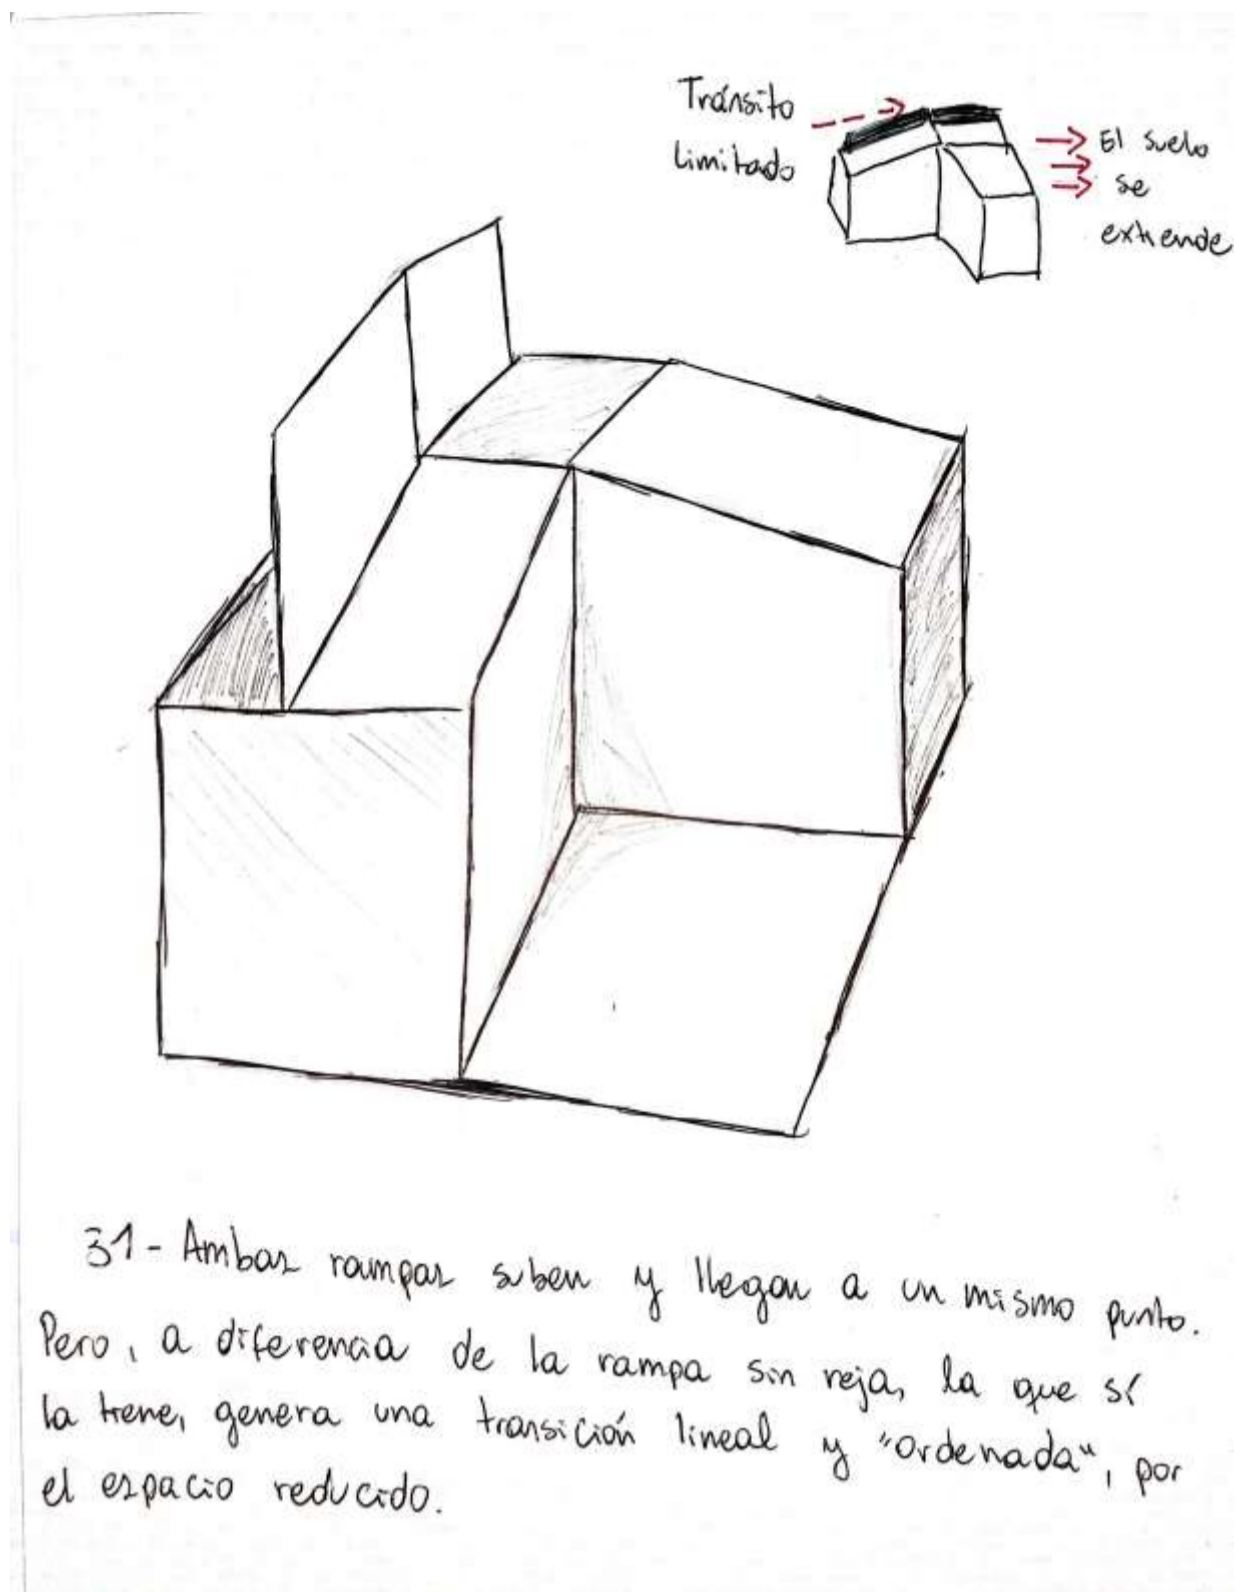 Tránsito
limitado
El suelo
se
extiende
31- Ambas rampas suben y llegan a un mismo punto.
Pero, a diferencia de la rampa sin reja, la que sí
la tiene, genera una transición lineal y "ordenada", por
el espacio reducido.